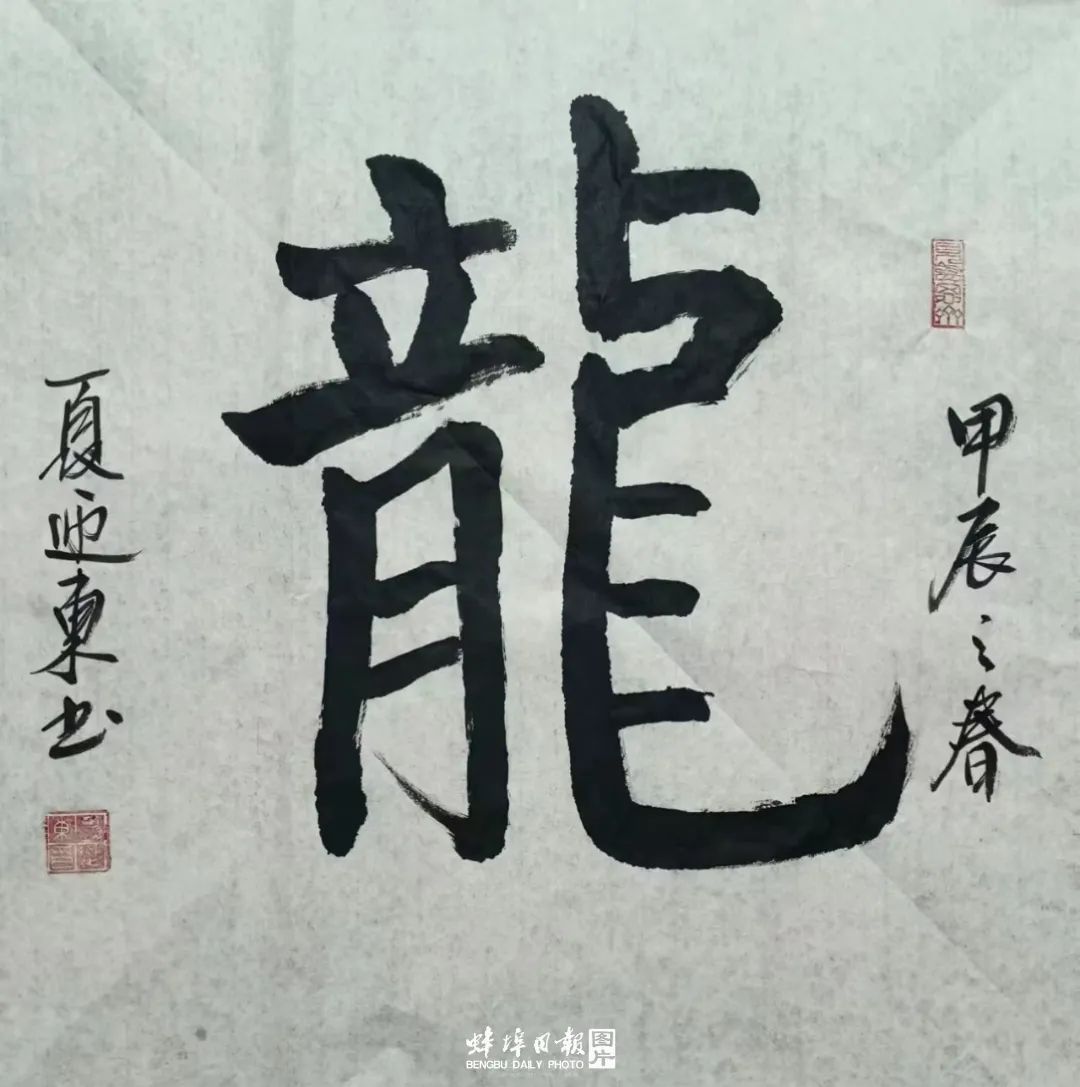 龍
甲辰之春
夏迎東书
蚌埠日報 图片
BENGBU DAILY PHOTO